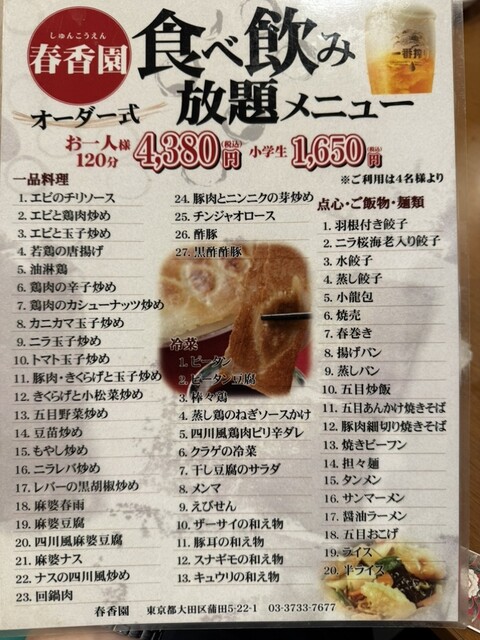 しゅんこうえん
春香園
食べ飲み
放題メニュー
オーダー式
お一人様
120分
4,380円(税込)
小学生 1,650円(税込)
※ご利用は4名様より
一品料理
1. エビのチリソース
2. エビと鶏肉炒め
3. エビと玉子炒め
4. 若鶏の唐揚げ
5. 油淋鶏
6. 鶏肉の辛子炒め
7. 鶏肉のカシューナッツ炒め
8. カニカマ玉子炒め
9. ニラ玉子炒め
10. トマト玉子炒め
11. 豚肉・きくらげと玉子炒め
12. きくらげと小松菜炒め
13. 五目野菜炒め
14. 豆苗炒め
15. もやし炒め
16. ニラレバ炒め
17. レバーの黒胡椒炒め
18. 麻婆春雨
19. 麻婆豆腐
20. 四川風麻婆豆腐
21. 麻婆ナス
22. ナスの四川風炒め
23. 回鍋肉
24. 豚肉とニンニクの芽炒め
25. チンジャオロース
26. 酢豚
27. 黒酢酢豚
冷菜
1. ピータン
2. ピータン豆腐
3. 棒々鶏
4. 蒸し鶏のねぎソースかけ
5. 四川風鶏肉ピリ辛ダレ
6. クラゲの冷菜
7. 干し豆腐のサラダ
8. メンマ
9. えびせん
10. ザーサイの和え物
11. 豚耳の和え物
12. スナギモの和え物
13. キュウリの和え物
点心・ご飯物・麺類
1. 羽根付き餃子
2. ニラ桜海老入り餃子
3. 水餃子
4. 蒸し餃子
5. 小龍包
6. 焼売
7. 春巻き
8. 揚げパン
9. 蒸しパン
10. 五目炒飯
11. 五目あんかけ焼きそば
12. 豚肉細切り焼きそば
13. 焼きビーフン
14. 担々麺
15. タンメン
16. サンマーメン
17. 醤油ラーメン
18. 五目おこげ
19. ライス
20. 半ライス
春香園 東京都大田区蒲田5-22-1 03-3733-7677